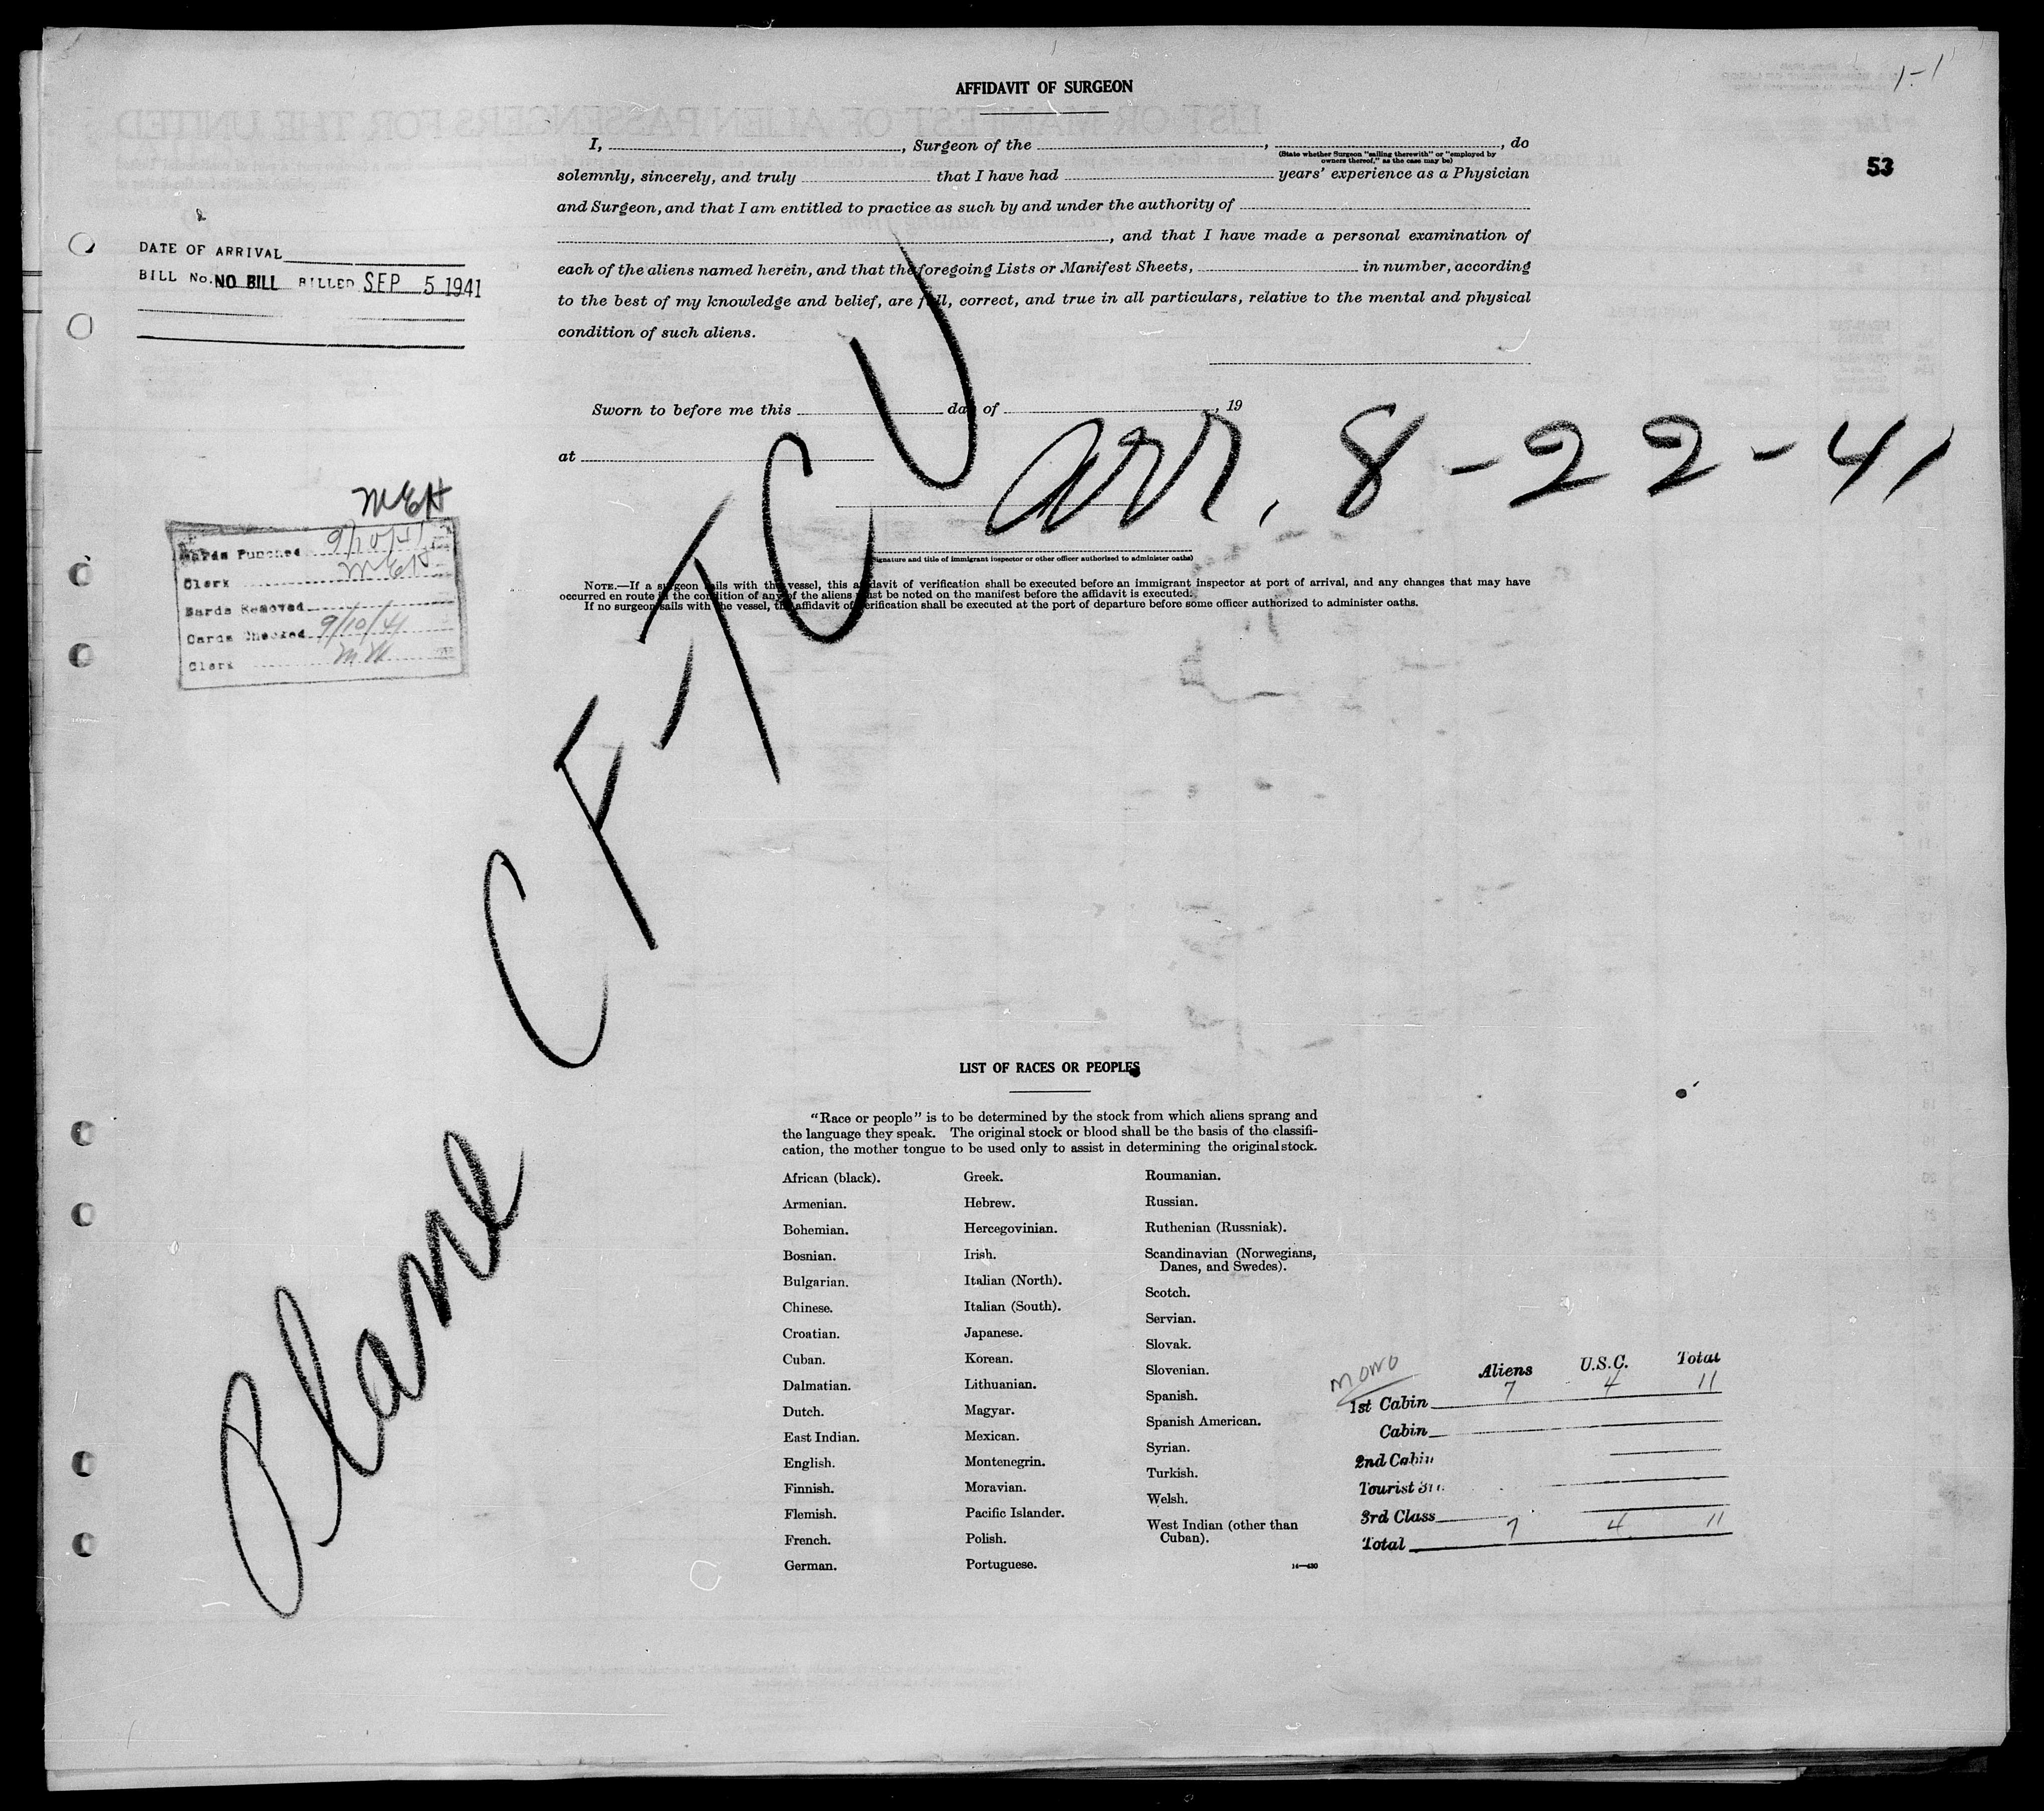 1-1
53
AFFIDAVIT OF SURGEON
I, , Surgeon of the , , do
(State whether Surgeon "sailing therewith" or "employed by
owners thereof," as the case may be)
solemnly, sincerely, and truly that I have had years' experience as a Physician
and Surgeon, and that I am entitled to practice as such by and under the authority of
, and that I have made a personal examination of
each of the aliens named herein, and that the foregoing Lists or Manifest Sheets, in number, according
to the best of my knowledge and belief, are full, correct, and true in all particulars, relative to the mental and physical
condition of such aliens.
Sworn to before me this day of , 19
at
(Signature and title of immigrant inspector or other officer authorized to administer oaths)
NOTE.—If a surgeon sails with the vessel, this affidavit of verification shall be executed before an immigrant inspector at port of arrival, and any changes that may have
occurred en route in the condition of any of the aliens must be noted on the manifest before the affidavit is executed.
If no surgeon sails with the vessel, the affidavit of verification shall be executed at the port of departure before some officer authorized to administer oaths.
DATE OF ARRIVAL
BILL No. NO BILL BILLED SEP 5 1941
MEH
Cards Punched 9/10/41
Clerk MEH
Cards Removed
Cards Checked 9/10/41
Clerk MH
Plane CF-TCU
arr. 8-22-41
LIST OF RACES OR PEOPLES
"Race or people" is to be determined by the stock from which aliens sprang and
the language they speak. The original stock or blood shall be the basis of the classifi-
cation, the mother tongue to be used only to assist in determining the original stock.
African (black).
Armenian.
Bohemian.
Bosnian.
Bulgarian.
Chinese.
Croatian.
Cuban.
Dalmatian.
Dutch.
East Indian.
English.
Finnish.
Flemish.
French.
German.
Greek.
Hebrew.
Hercegovinian.
Irish.
Italian (North).
Italian (South).
Japanese.
Korean.
Lithuanian.
Magyar.
Mexican.
Montenegrin.
Moravian.
Pacific Islander.
Polish.
Portuguese.
Roumanian.
Russian.
Ruthenian (Russniak).
Scandinavian (Norwegians,
Danes, and Swedes).
Scotch.
Servian.
Slovak.
Slovenian.
Spanish.
Spanish American.
Syrian.
Turkish.
Welsh.
West Indian (other than
Cuban).
14—430
mono
Aliens U.S.C. Total
1st Cabin 7 4 11
Cabin
2nd Cabin
Tourist 3rd
3rd Class
Total 7 4 11